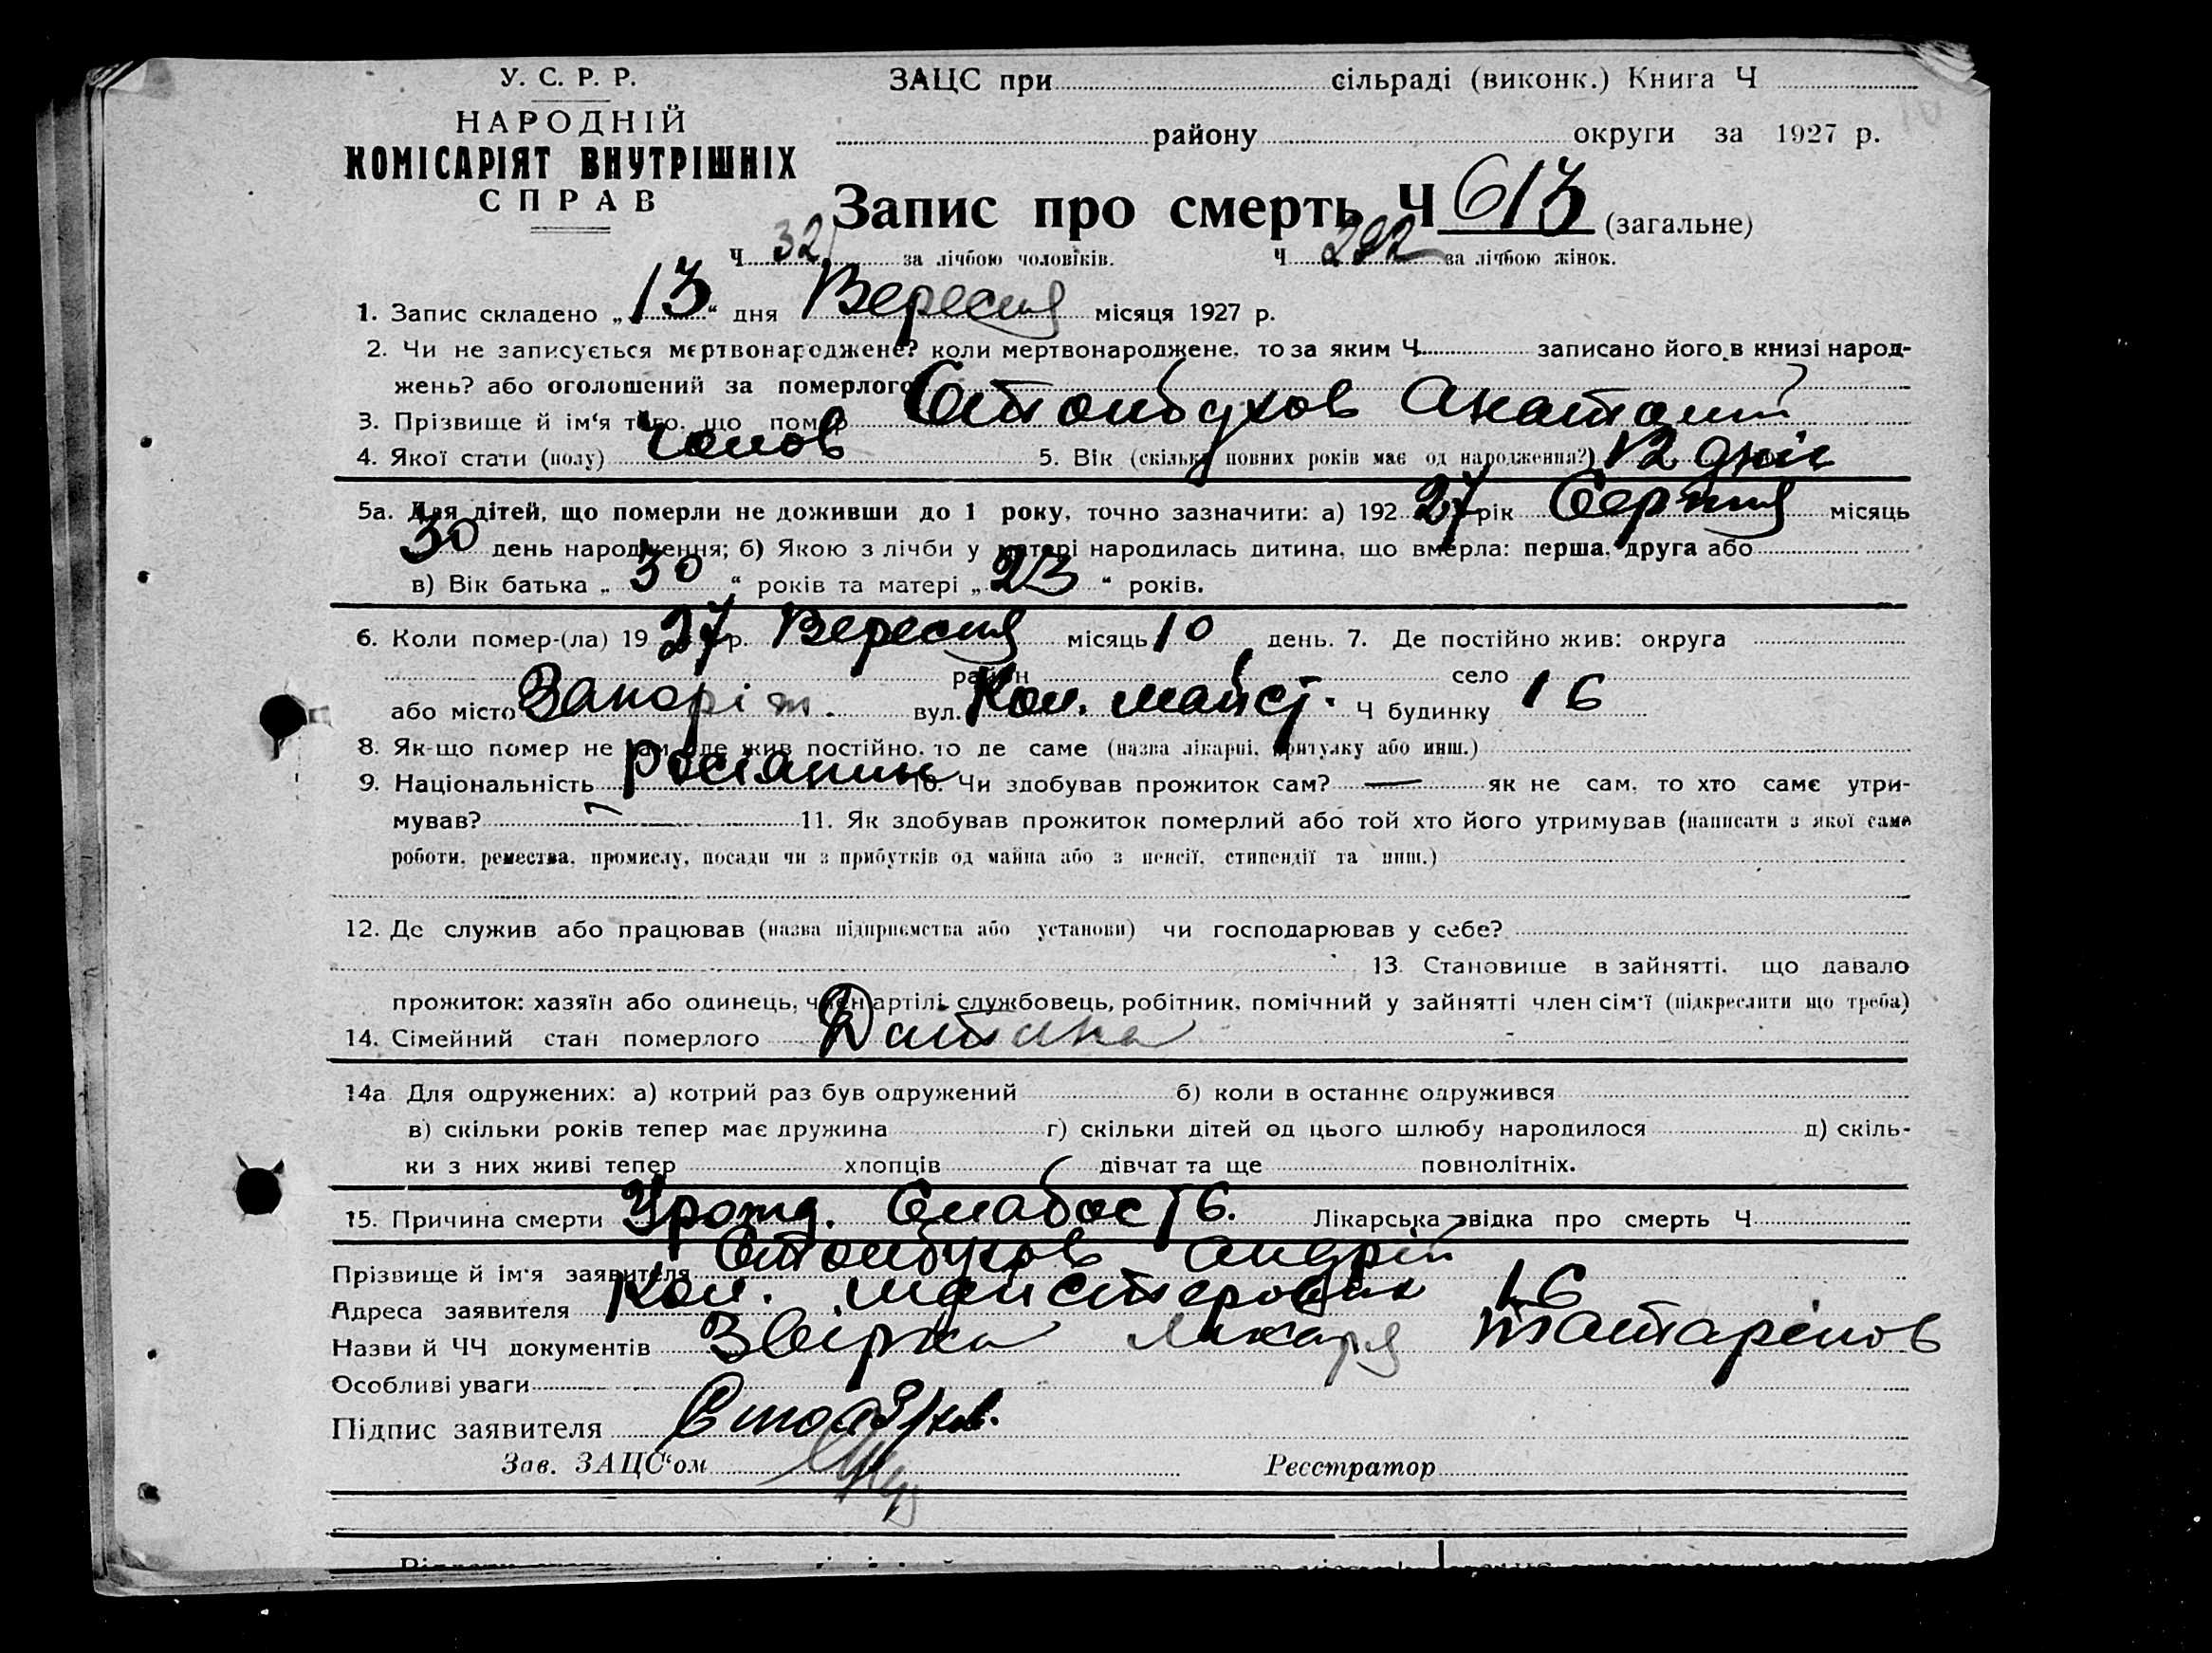 У. С. Р. Р.
НАРОДНІЙ
КОМІСАРІЯТ ВНУТРІШНІХ
СПРАВ
ЗАЦС при сільраді (виконк.) Книга Ч
району округи за 1927 р.
Запис про смерть Ч 613 (загальне)
Ч 321 за лічбою чоловіків. Ч 292 за лічбою жінок.
1. Запис складено „13“ дня Вересня місяця 1927 р.
2. Чи не записується мертвонароджене? коли мертвонароджене, то за яким Ч записано його в книзі народ-
жень? або оголошений за померлого
3. Прізвище й ім‘я того, що помер Столбухов Анатолий
4. Якої стати (полу) Чолов 5. Вік (скільки повних років має од народження?) 12 днів
5а. Для дітей, що померли не доживши до 1 року, точно зазначити: а) 192 27 рік Серпня місяць
30 день народження; б) Якою з лічби у матері народилась дитина, що вмерла: перша, друга або
в) Вік батька „30“ років та матері „23“ років.
6. Коли помер-(ла) 19 27 р. Вересня місяць 10 день. 7. Де постійно жив: округа
район село
або місто Запоріж. вул. Кол. майст. Ч будинку 16
8. Як-що помер не там, де жив постійно, то де саме (назва лікарні, притулку або инш.)
9. Національність росіянин 10. Чи здобував прожиток сам? — як не сам, то хто саме утри-
мував? 11. Як здобував прожиток померлий або той хто його утримував (написати з якої саме
роботи, ремества, промислу, посади чи з прибутків од майна або з пенсії, стипендії та инш.)
12. Де служив або працював (назва підприємства або установи) чи господарював у себе?
13. Становище в зайнятті, що давало
прожиток: хазяїн або одинець, член артілі, службовець, робітник, помічний у зайнятті член сім‘ї (підкреслити що треба)
14. Сімейний стан померлого Дитина
14а Для одружених: а) котрий раз був одружений б) коли в останнє одружився
в) скільки років тепер має дружина г) скільки дітей од цього шлюбу народилося д) скіль-
ки з них живі тепер хлопців дівчат та ще повнолітніх.
15. Причина смерти Урожд. Слабость. Лікарська звідка про смерть Ч
Прізвище й ім‘я заявителя Столбухов Андрій
Адреса заявителя Кол. 16
Назви й ЧЧ документів Звірка Лікаря Татарінов
Особливі уваги
Підпис заявителя
Зав. ЗАЦС‘ом Реєстратор